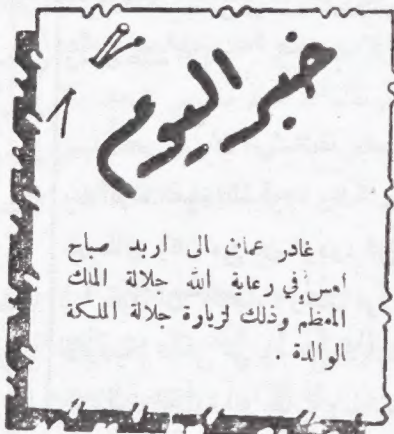 خبر اليوم
غادر عمان الى اربد صباح
امس في رعاية الله جلالة الملك
المعظم وذلك لزيارة جلالة الملكة
الوالدة .